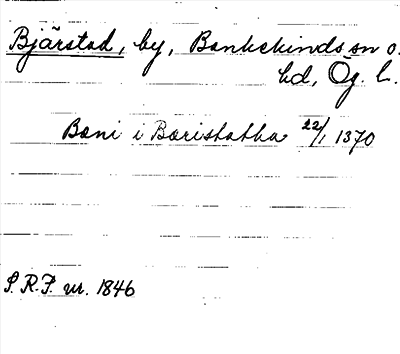 Bjärstad, by, Bankekinds sn o.
hd, Ög. l.
Bœni i Bœristatha 22/1 1370
S.R.P. nr. 1846